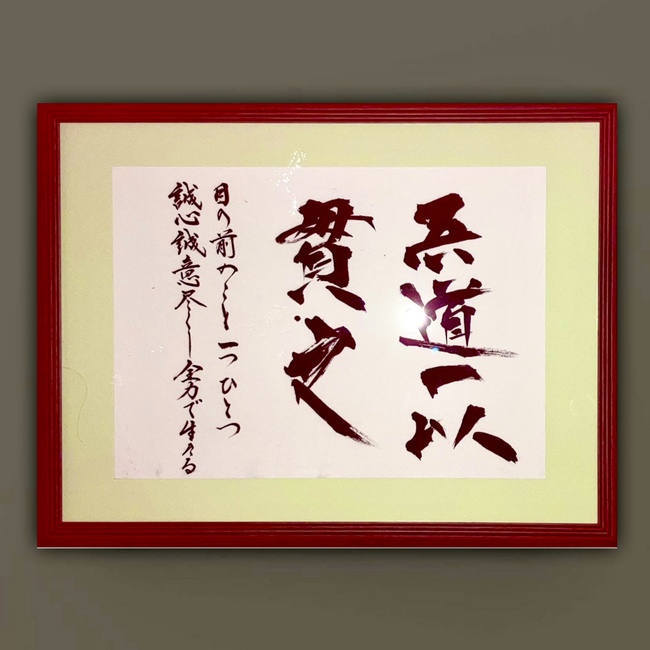 吾道一以
貫之
目の前のこと一つひとつ
誠心誠意尽くし全力で生きる